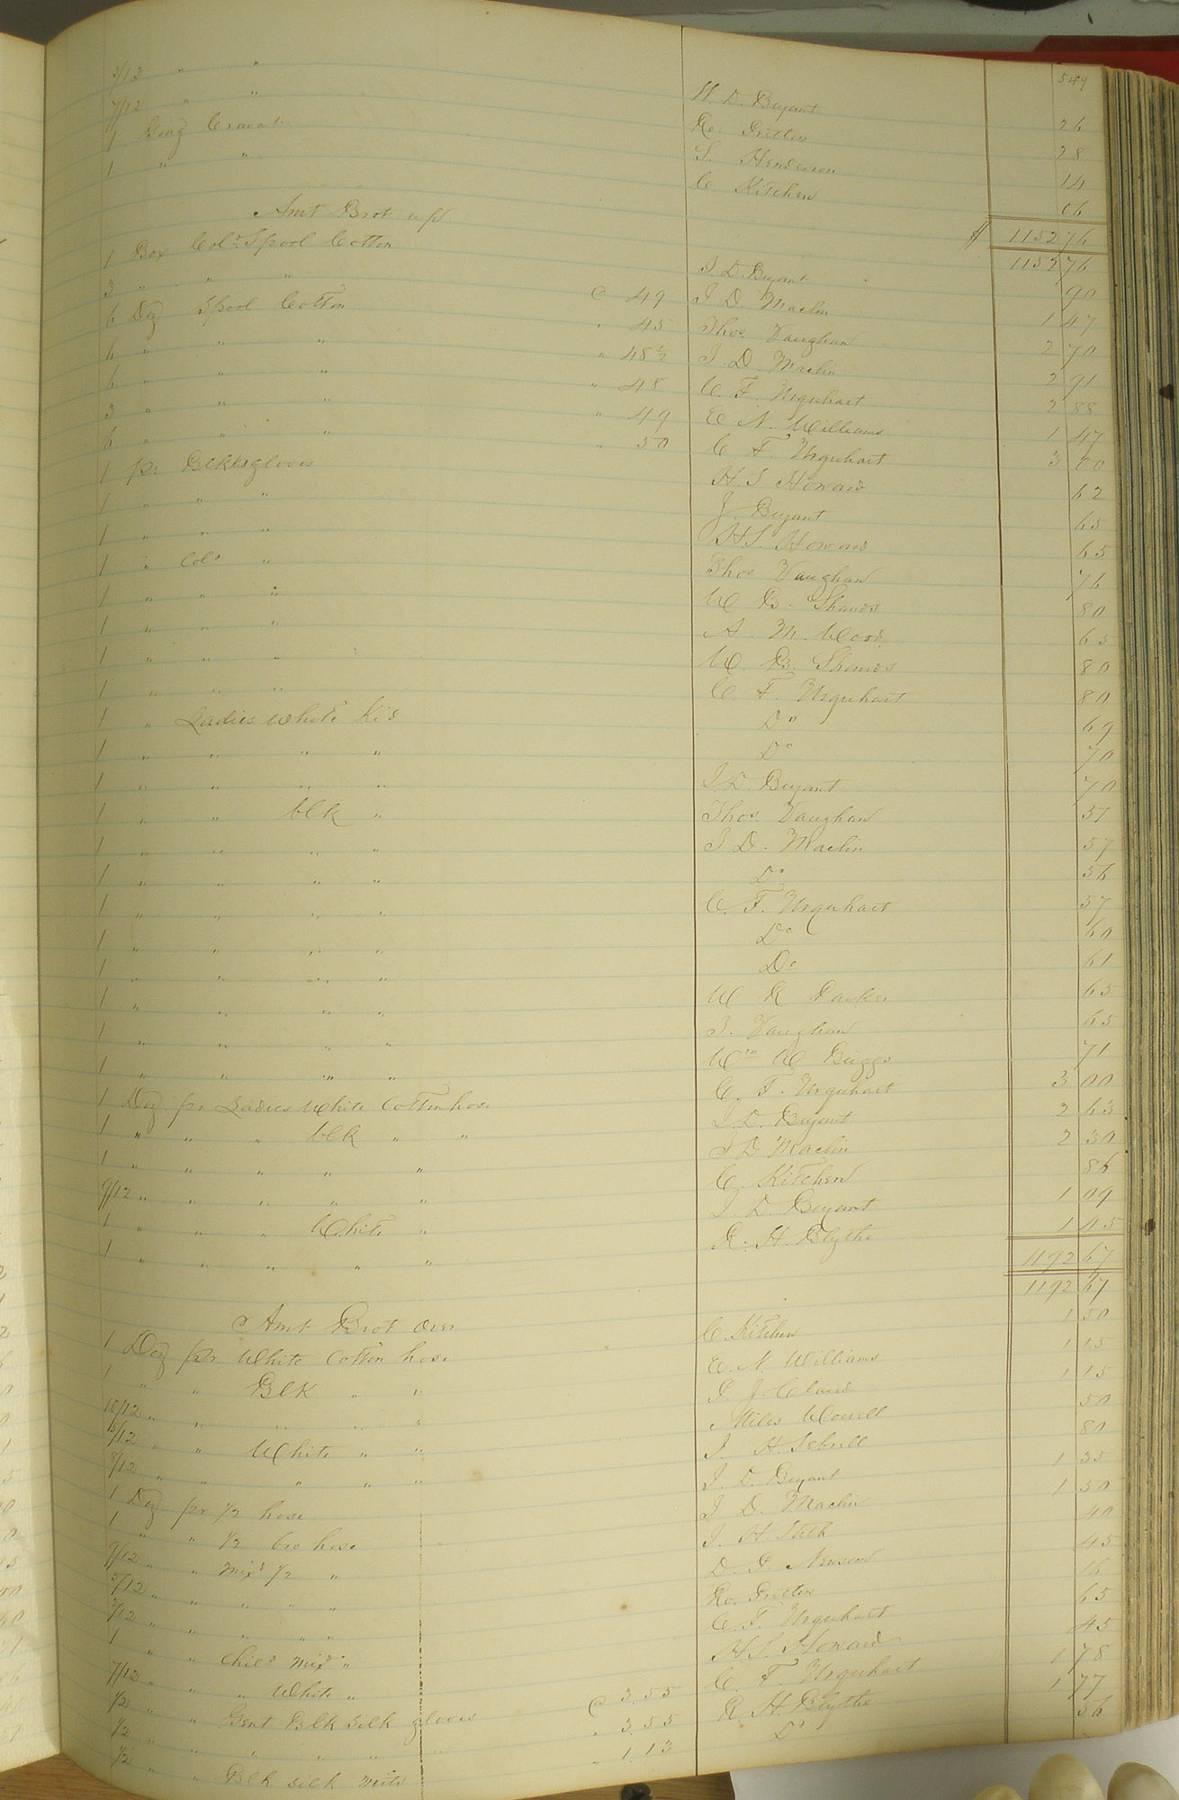 549
3/12 " "
7/12 " " W. D. Bryant 26
1 Ging Cravat Ro. Pretlow 28
1 " " S. Henderson 14
C Kitchen 06
$ 1152 76
Amt Brot up 1152 76
1 Box Cold Spool Cotton J D Bryant 90
3 " " @ 49 J. D. Maclin 1 47
6 Doz Spool Cotton " 45 Thos Vaughan 2 70
6 " " " " 48½ J. D. Maclin 2 91
6 " " " " 48 C. F. Urquhart 2 88
3 " " " " 49 E N. Williams 1 47
6 " " " " 50 C F. Urquhart 3 00
1 pr Blk gloves H. S Howard 62
1 " " " J. Bryant 65
1 " " " H S. Howard 65
1 " Cold " Thos Vaughan 76
1 " " " W B. Shands 80
1 " " " A. M. Wood 65
1 " " " W. B. Shands 80
1 " " " C F. Urquhart 80
1 " Ladies White Kid Do 69
1 " " " " Do 70
1 " " " " J. D. Bryant 70
1 " " blk " Thos. Vaughan 57
1 " " " " J D. Maclin 57
1 " " " " Do 56
1 " " " " C. F. Urquhart 57
1 " " " " Do 60
1 " " " " Do 61
1 " " " " W R Parker 65
1 " " " " J. Vaughan 65
1 " " " " Wm W Briggs 71
1 Doz pr Ladies White Cotton hose C. F. Urquhart 3 00
1 " " " blk " " J. D. Bryant 2 63
1 " " " " " J D Maclin 2 30
9/12 " " " " " C. Kitchen 86
1 " " " White " J. D. Bryant 1 09
1 " " " " " R. H. Blythe 1 05
1192 67
Amt Brot Over 1192 67
1 Doz pr White Cotton hose C Kitchen 1 50
1 " " Blk " " E. N. Williams 1 15
10/12 " " " " " P J Claud 1 15
" " White " " Miles Worrell 50
8/12 " " " " " J. H. Sebrell 80
1 Doz pr 1/2 hose J. D. Bryant 1 35
1 " " 1/2 hose J D. Maclin 1 50
9/12 " " mixd 1/2 " J. H. 40
" " " " D. P. Newsom 45
3/12 " " " " Ro. Pretlow 16
1 " " Child mixd " C. F. Urquhart 65
7/12 " " " White " H S. Howard 45
1/2 " " Gent Blk Silk gloves @ 3.55 C F. Urquhart 1 78
1/2 " " " " " " " 3.55 R. H. Blythe 1 77
1/2 " " Blk silk mitts " 1.13 Do 56